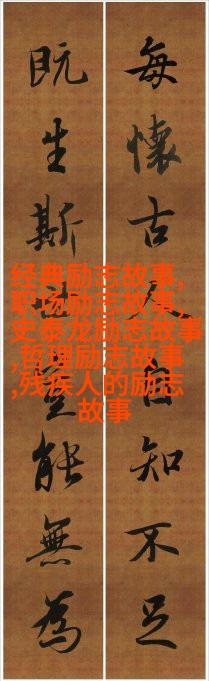 每懷古人自知不足
既生斯世豈能無為
经典励志故事,
职场励志故事,
史泰龙励志故事
,哲理励志故事
,残疾人的励志
故事